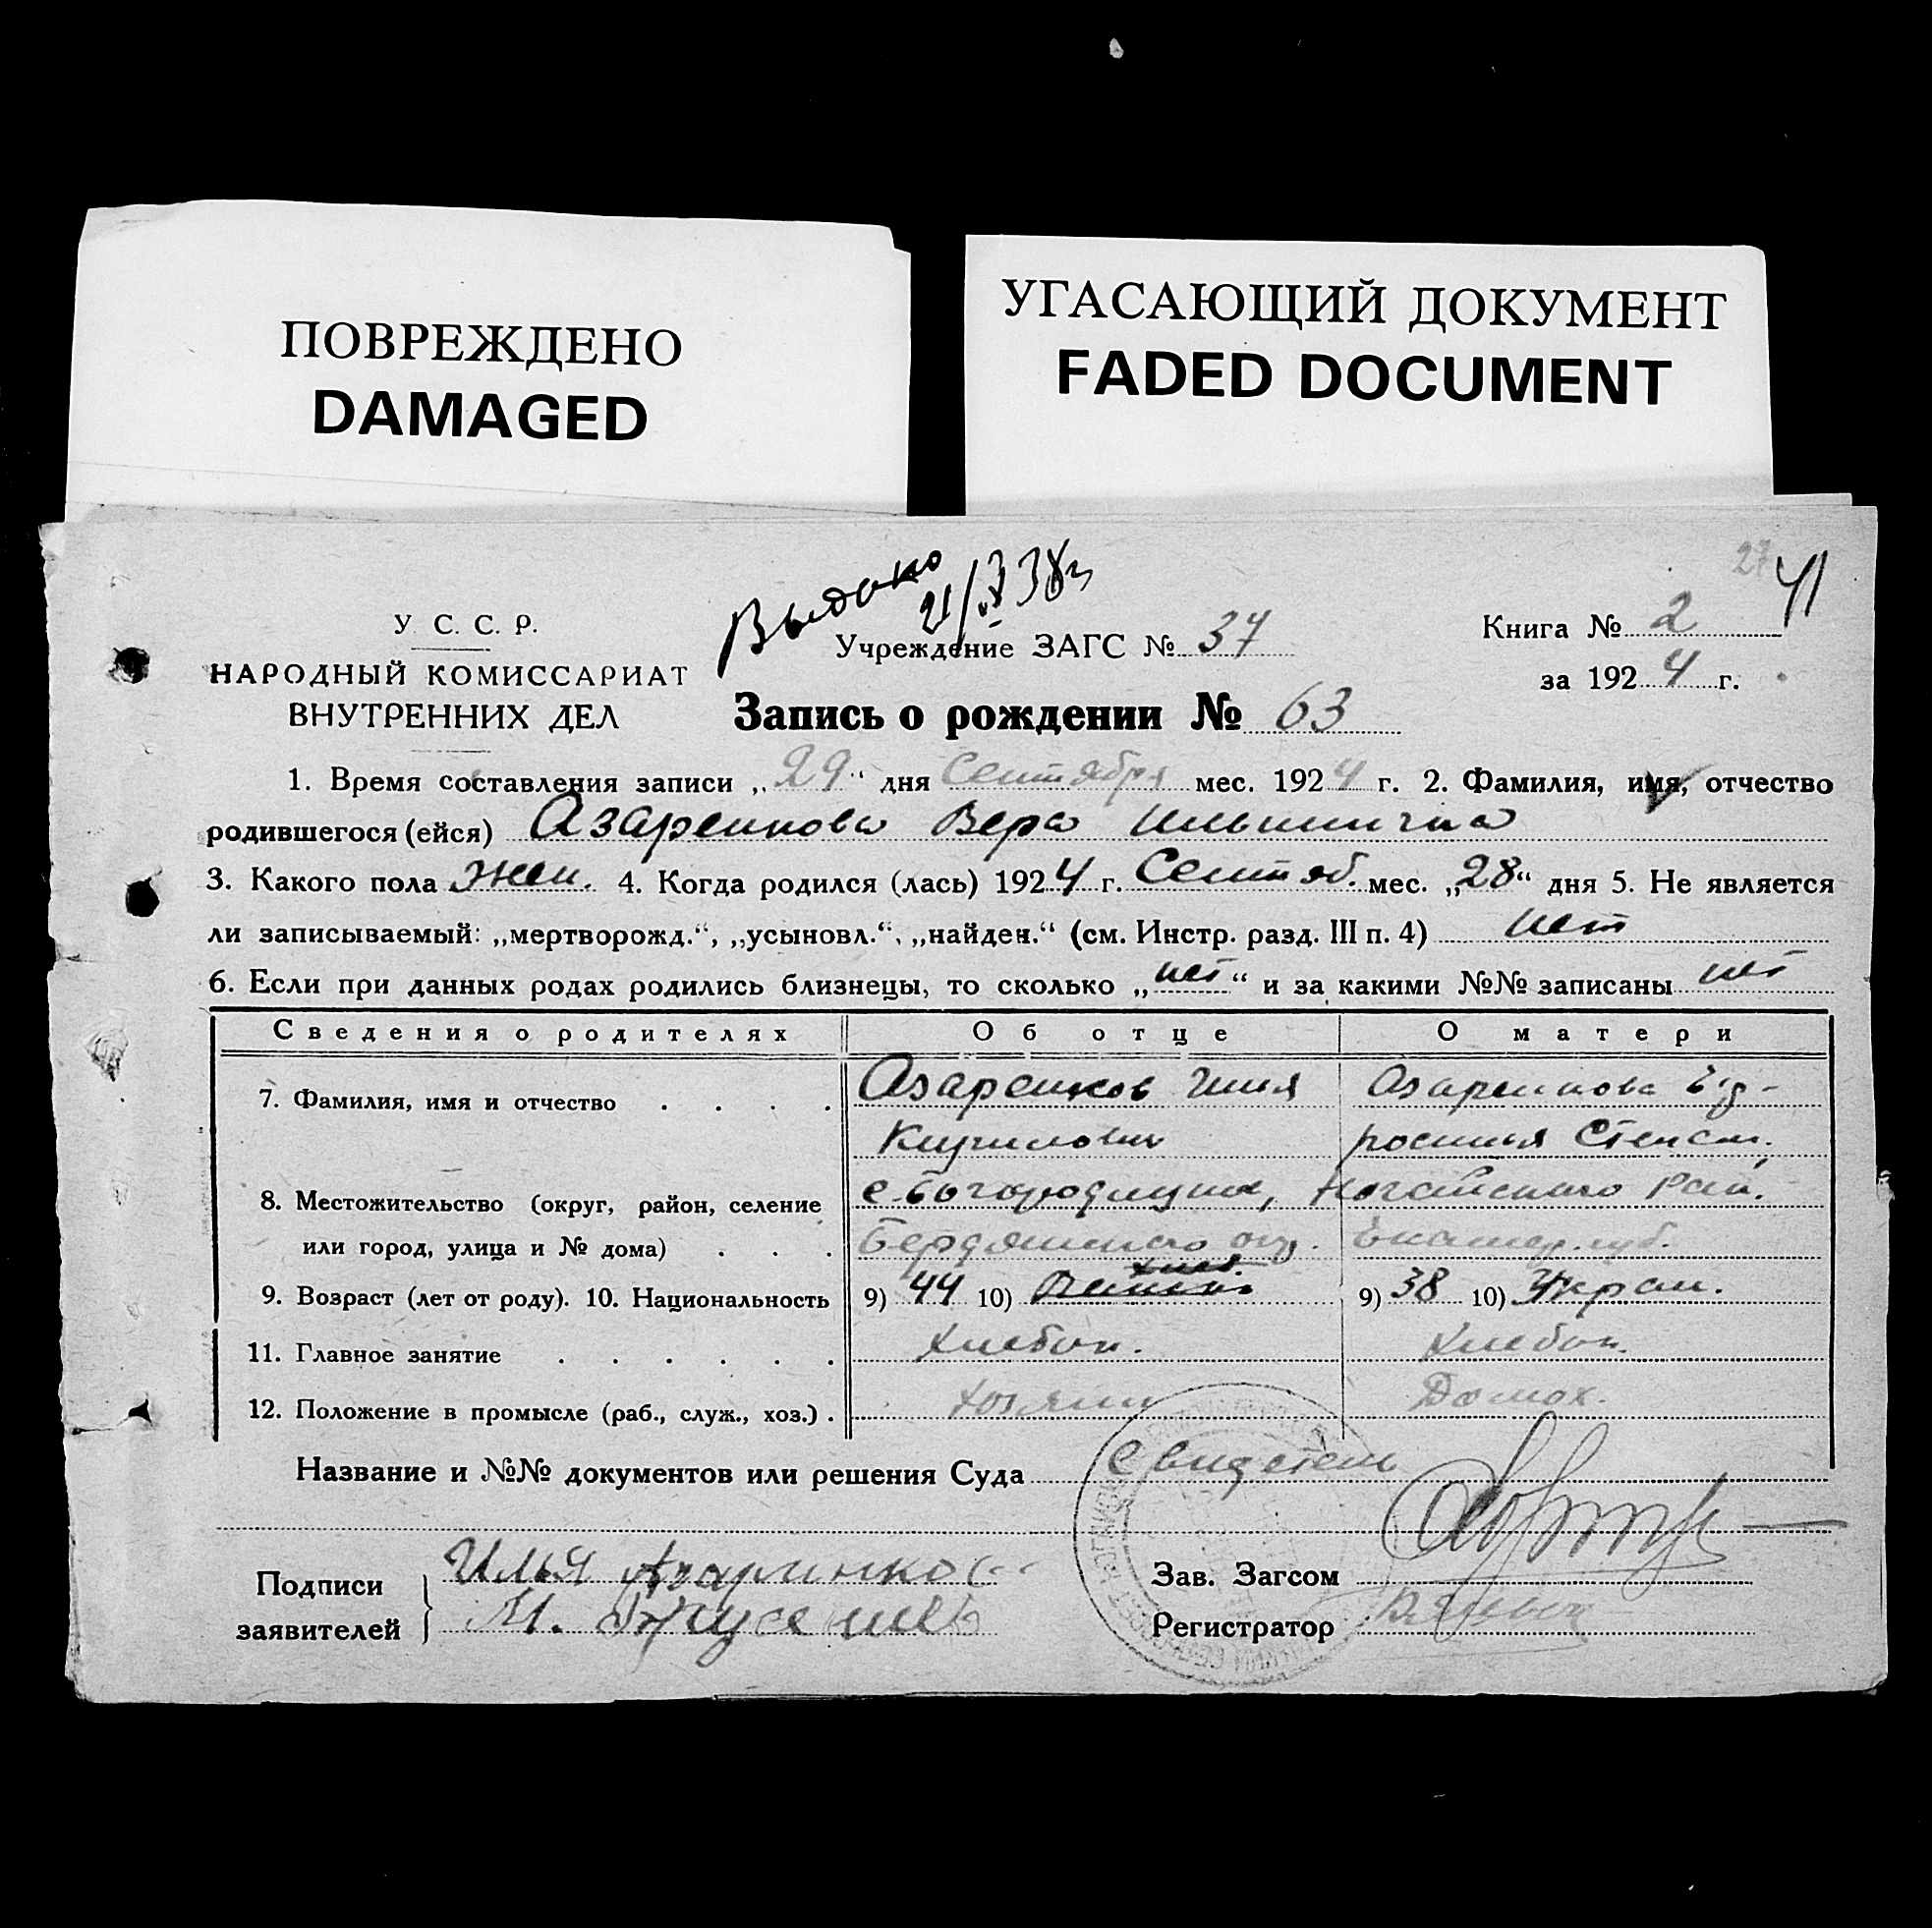 ПОВРЕЖДЕНО
DAMAGED
УГАСАЮЩИЙ ДОКУМЕНТ
FADED DOCUMENT
27 41
Выдано
21/X 38г
У. С. С. Р.
НАРОДНЫЙ КОМИССАРИАТ
ВНУТРЕННИХ ДЕЛ
Учреждение ЗАГС № 37
Книга № 2
за 1924 г.
Запись о рождении № 63
1. Время составления записи „29“ дня Сентября мес. 1924 г. 2. Фамилия, имя, отчество
родившегося (ейся) Азаренкова Вера Ильинична
3. Какого пола жен. 4. Когда родился (лась) 1924 г. Сентяб. мес. „28“ дня 5. Не является
ли записываемый: „мертворожд.“, „усыновл.“, „найден.“ (см. Инстр. разд. III п. 4) нет
6. Если при данных родах родились близнецы, то сколько „нет“ и за какими №№ записаны нет
Сведения о родителях Об отце О матери
7. Фамилия, имя и отчество Азаренков Илья Азаренкова Ев-
Кирилович росинья Степан.
8. Местожительство (округ, район, селение с. Богородицкое, Ногайского Рай.
или город, улица и № дома) Бердянского окр. Екатер. губ.
9. Возраст (лет от роду). 10. Национальность 9) 44 10) 9) 38 10) Укран.
11. Главное занятие Хлебоп. Хлебоп.
12. Положение в промысле (раб., служ., хоз.) Хозяин Домох.
Название и №№ документов или решения Суда Свидетель
Подписи
заявителей
Илья Азаринков
М.
Зав. Загсом
Регистратор